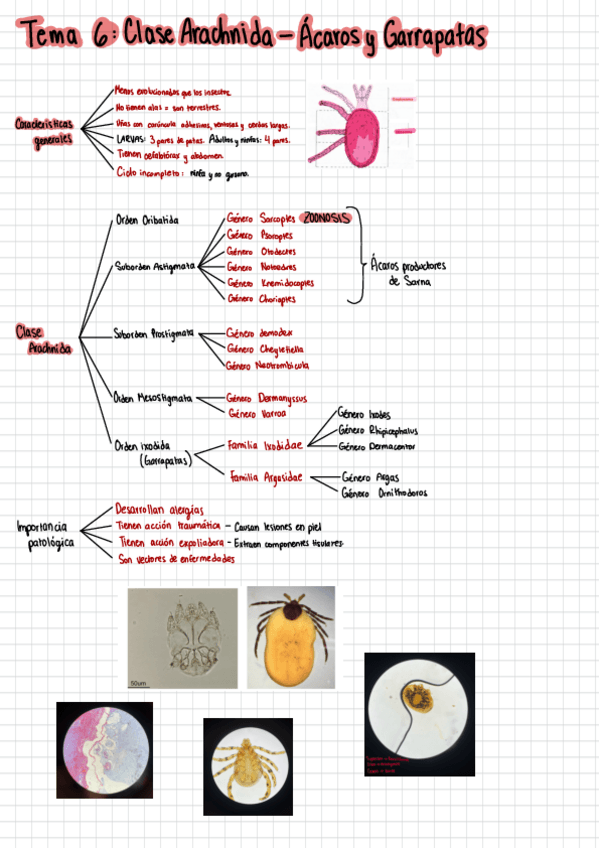 Tema 6: Clase Arachnida - Ácaros y Garrapatas
Características generales
Menos evolucionados que los insectos.
No tienen alas = son terrestres.
Uñas con carúncula adhesivas, ventosas y cerdas largas.
LARVAS: 3 pares de patas. Adultos y ninfas: 4 pares.
Tienen cefalotórax y abdomen.
Ciclo incompleto: ninfa y no gusano.
Clase Arachnida
Orden Oribatida
Suborden Astigmata
Género Sarcoptes ZOONOSIS
Género Psoroptes
Género Otodectes
Género Notoedres
Género Knemidocoptes
Género Chorioptes
Ácaros productores
de Sarna
Suborden Prostigmata
Género demodex
Género Cheyletiella
Género Neotrombicula
Orden Mesostigmata
Género Dermanyssus
Género Varroa
Orden Ixodida
(Garrapatas)
Familia Ixodidae
Género Ixodes
Género Rhipicephalus
Género Dermacentor
Familia Argasidae
Género Argas
Género Ornithodoros
Importancia
patológica
Desarrollan alergias
Tienen acción traumática - Causan lesiones en piel
Tienen acción expoliadora - Extraen componentes tisulares.
Son vectores de enfermedades
50um